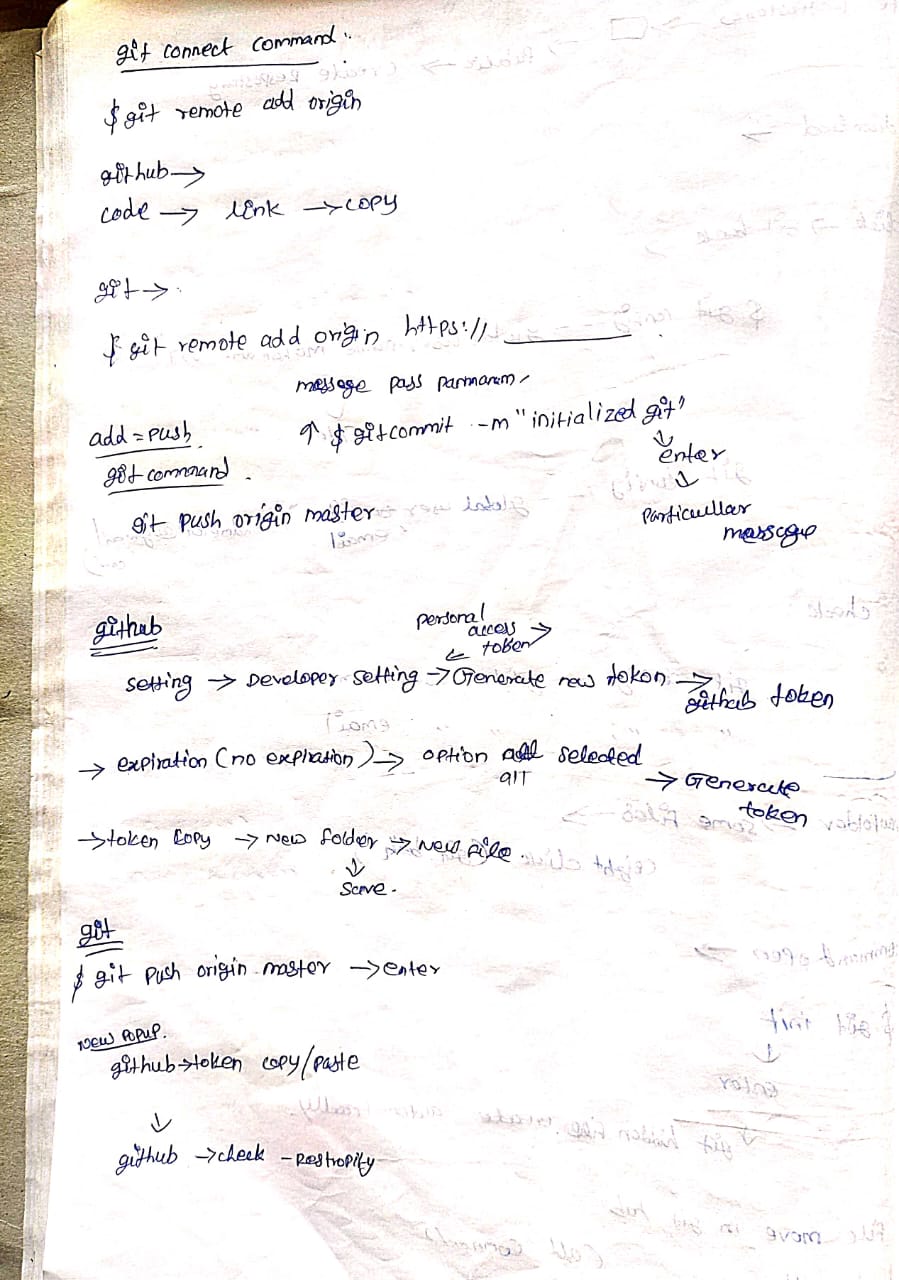 git connect command :
$ git remote add origin
github →
code → link → copy
git →
$ git remote add origin https://________
message pass parmanam
add = push
↑ $ git commit -m "initialized git"
↓
enter
↓
git command
git push origin master
Particullar
message
github
personal
access →
← token
setting → Developer setting → Generate new token →
github token
→ expiration (no expiration) → option all selected
all
→ Generate
token
→ token copy → New folder → New file
↓
Save.
git
$ git push origin master → enter
New Popup.
github → token copy/paste
↓
github → check - Restropify